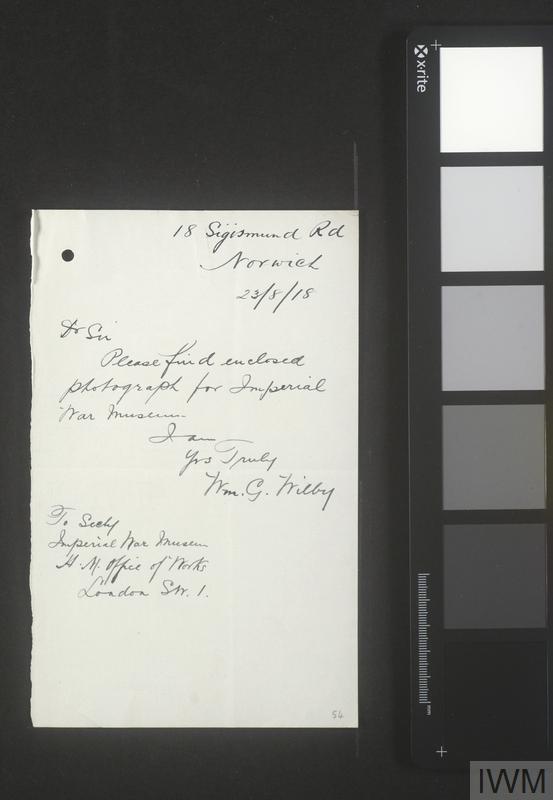 18 Sigismund Rd
Norwich
23/8/18
Dr Sir
Please find enclosed
photograph for Imperial
War Museum
I am
Yrs Truly
Wm. G. Wilby
To Secty
Imperial War Museum
H. M. Office of Works
London SW. 1.
54
x-rite
mm
IWM